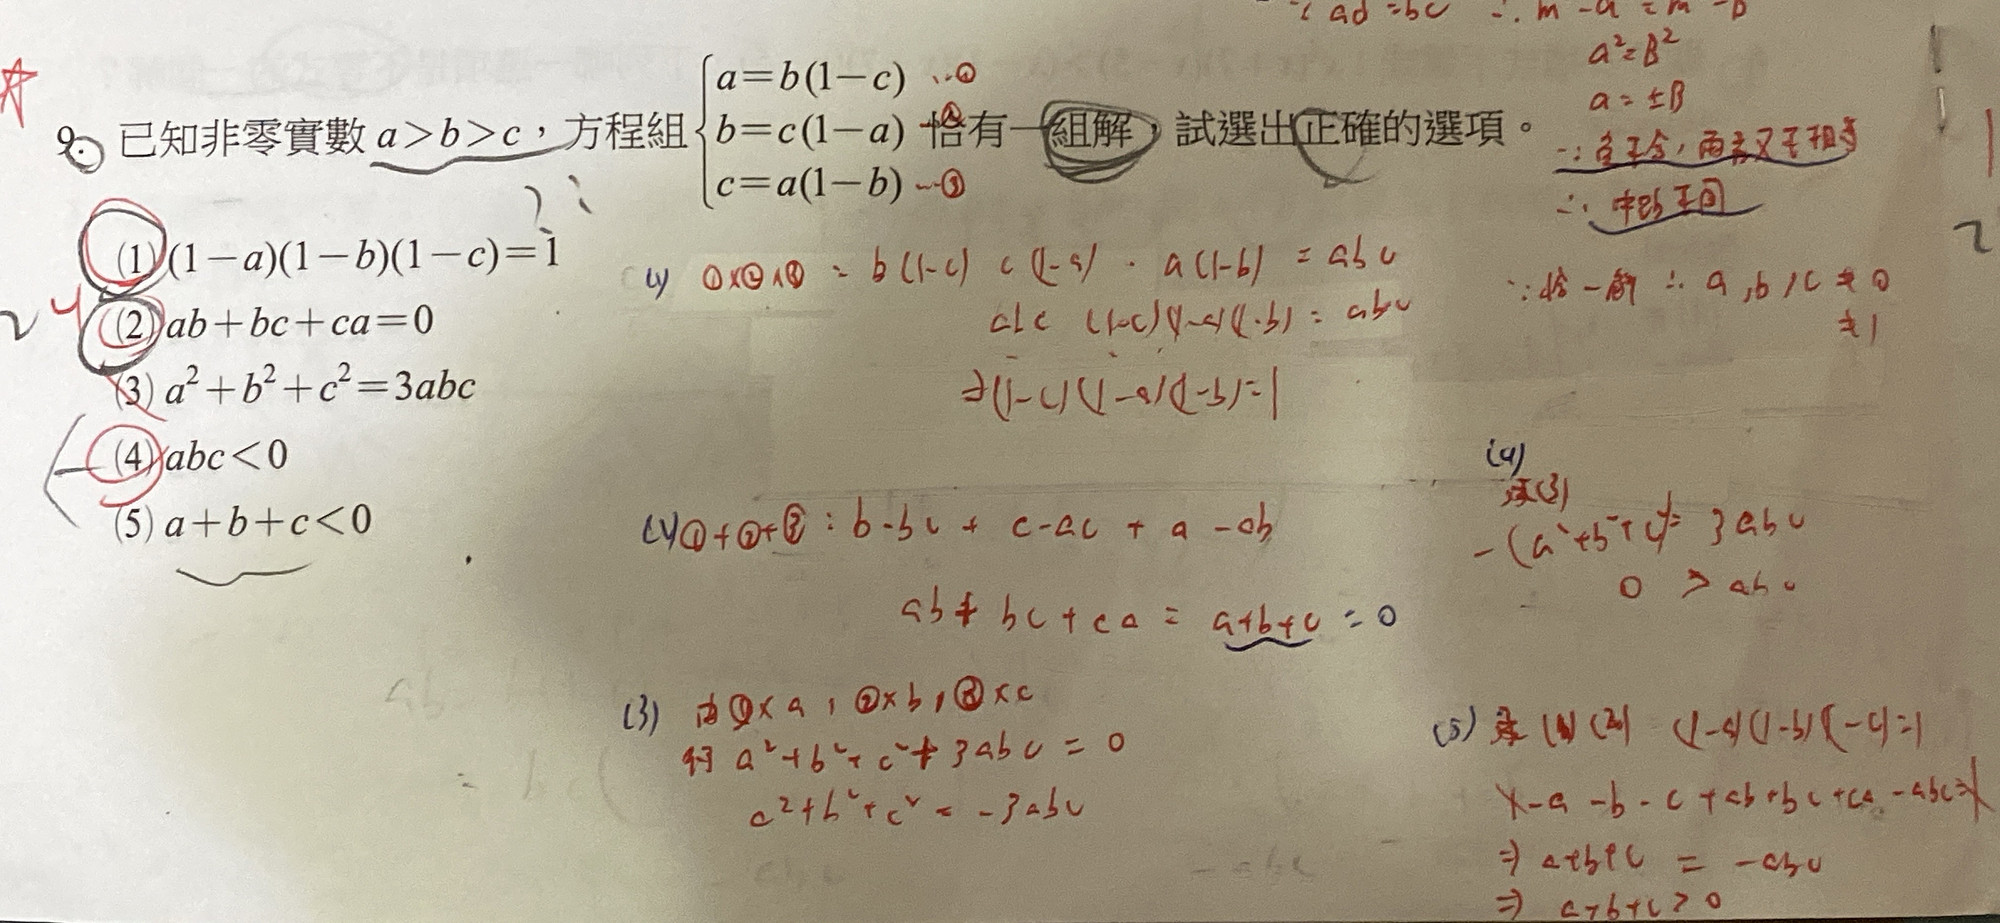 ∵ ad = bc ∴ m-a = m-b
a²=B²
a = ±B
∴ 中點不同
9. 已知非零實數 a>b>c,方程組 { a=b(1-c) …①
b=c(1-a) …② 恰有一組解,試選出正確的選項。
c=a(1-b) …③
(1) (1-a)(1-b)(1-c)=1
(2) ab+bc+ca=0
(3) a²+b²+c²=3abc
(4) abc<0
(5) a+b+c<0
(1) ①×②×③ = b(1-c) c(1-a) · a(1-b) = abc
abc (1-c)(1-a)(1-b) = abc
(1-c)(1-a)(1-b)=1
∵恰一解 ∴ a,b,c ≠ 0
≠1
(2) ①+②+③ : b-bc + c-ac + a-ab
ab + bc + ca = a+b+c = 0
(3) 由①×a , ②×b , ③×c
得 a²+b²+c²+3abc = 0
a²+b²+c² = -3abc
(4)
承(3)
-(a²+b²+c²)= 3abc
0 > abc
(5) 承(1)(2) (1-a)(1-b)(1-c)=1
1-a-b-c+ab+bc+ca-abc=1
⇒ a+b+c = -abc
⇒ a+b+c>0